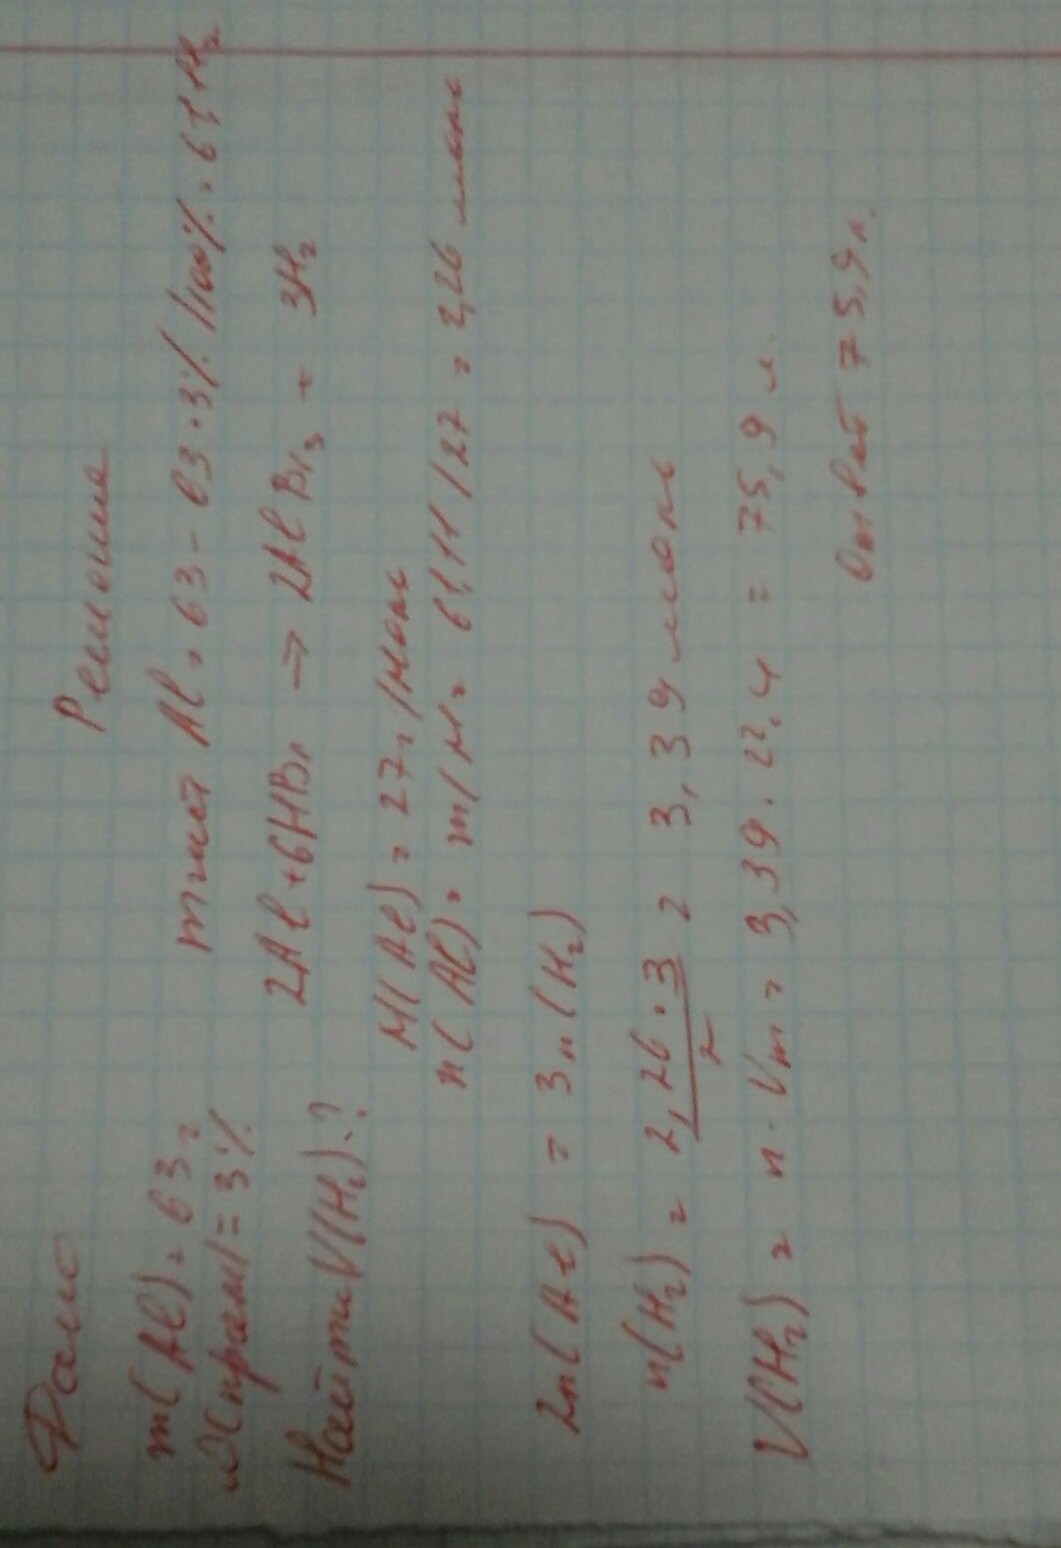 Дано
Решение
m(Al) = 63г
ω(прим) = 3%
Найти V(H₂)-?
mчист Al = 63 - 63·3%/100% = 61,11г
2Al + 6HBr → 2AlBr₃ + 3H₂
M(Al) = 27г/моль
n(Al) = m/M = 61,11/27 = 2,26 моль
2n(Al) = 3n(H₂)
n(H₂) = 2,26·3/2 = 3,39 моль
V(H₂) = n·Vm = 3,39·22,4 = 75,9 л.
Ответ 75,9л.